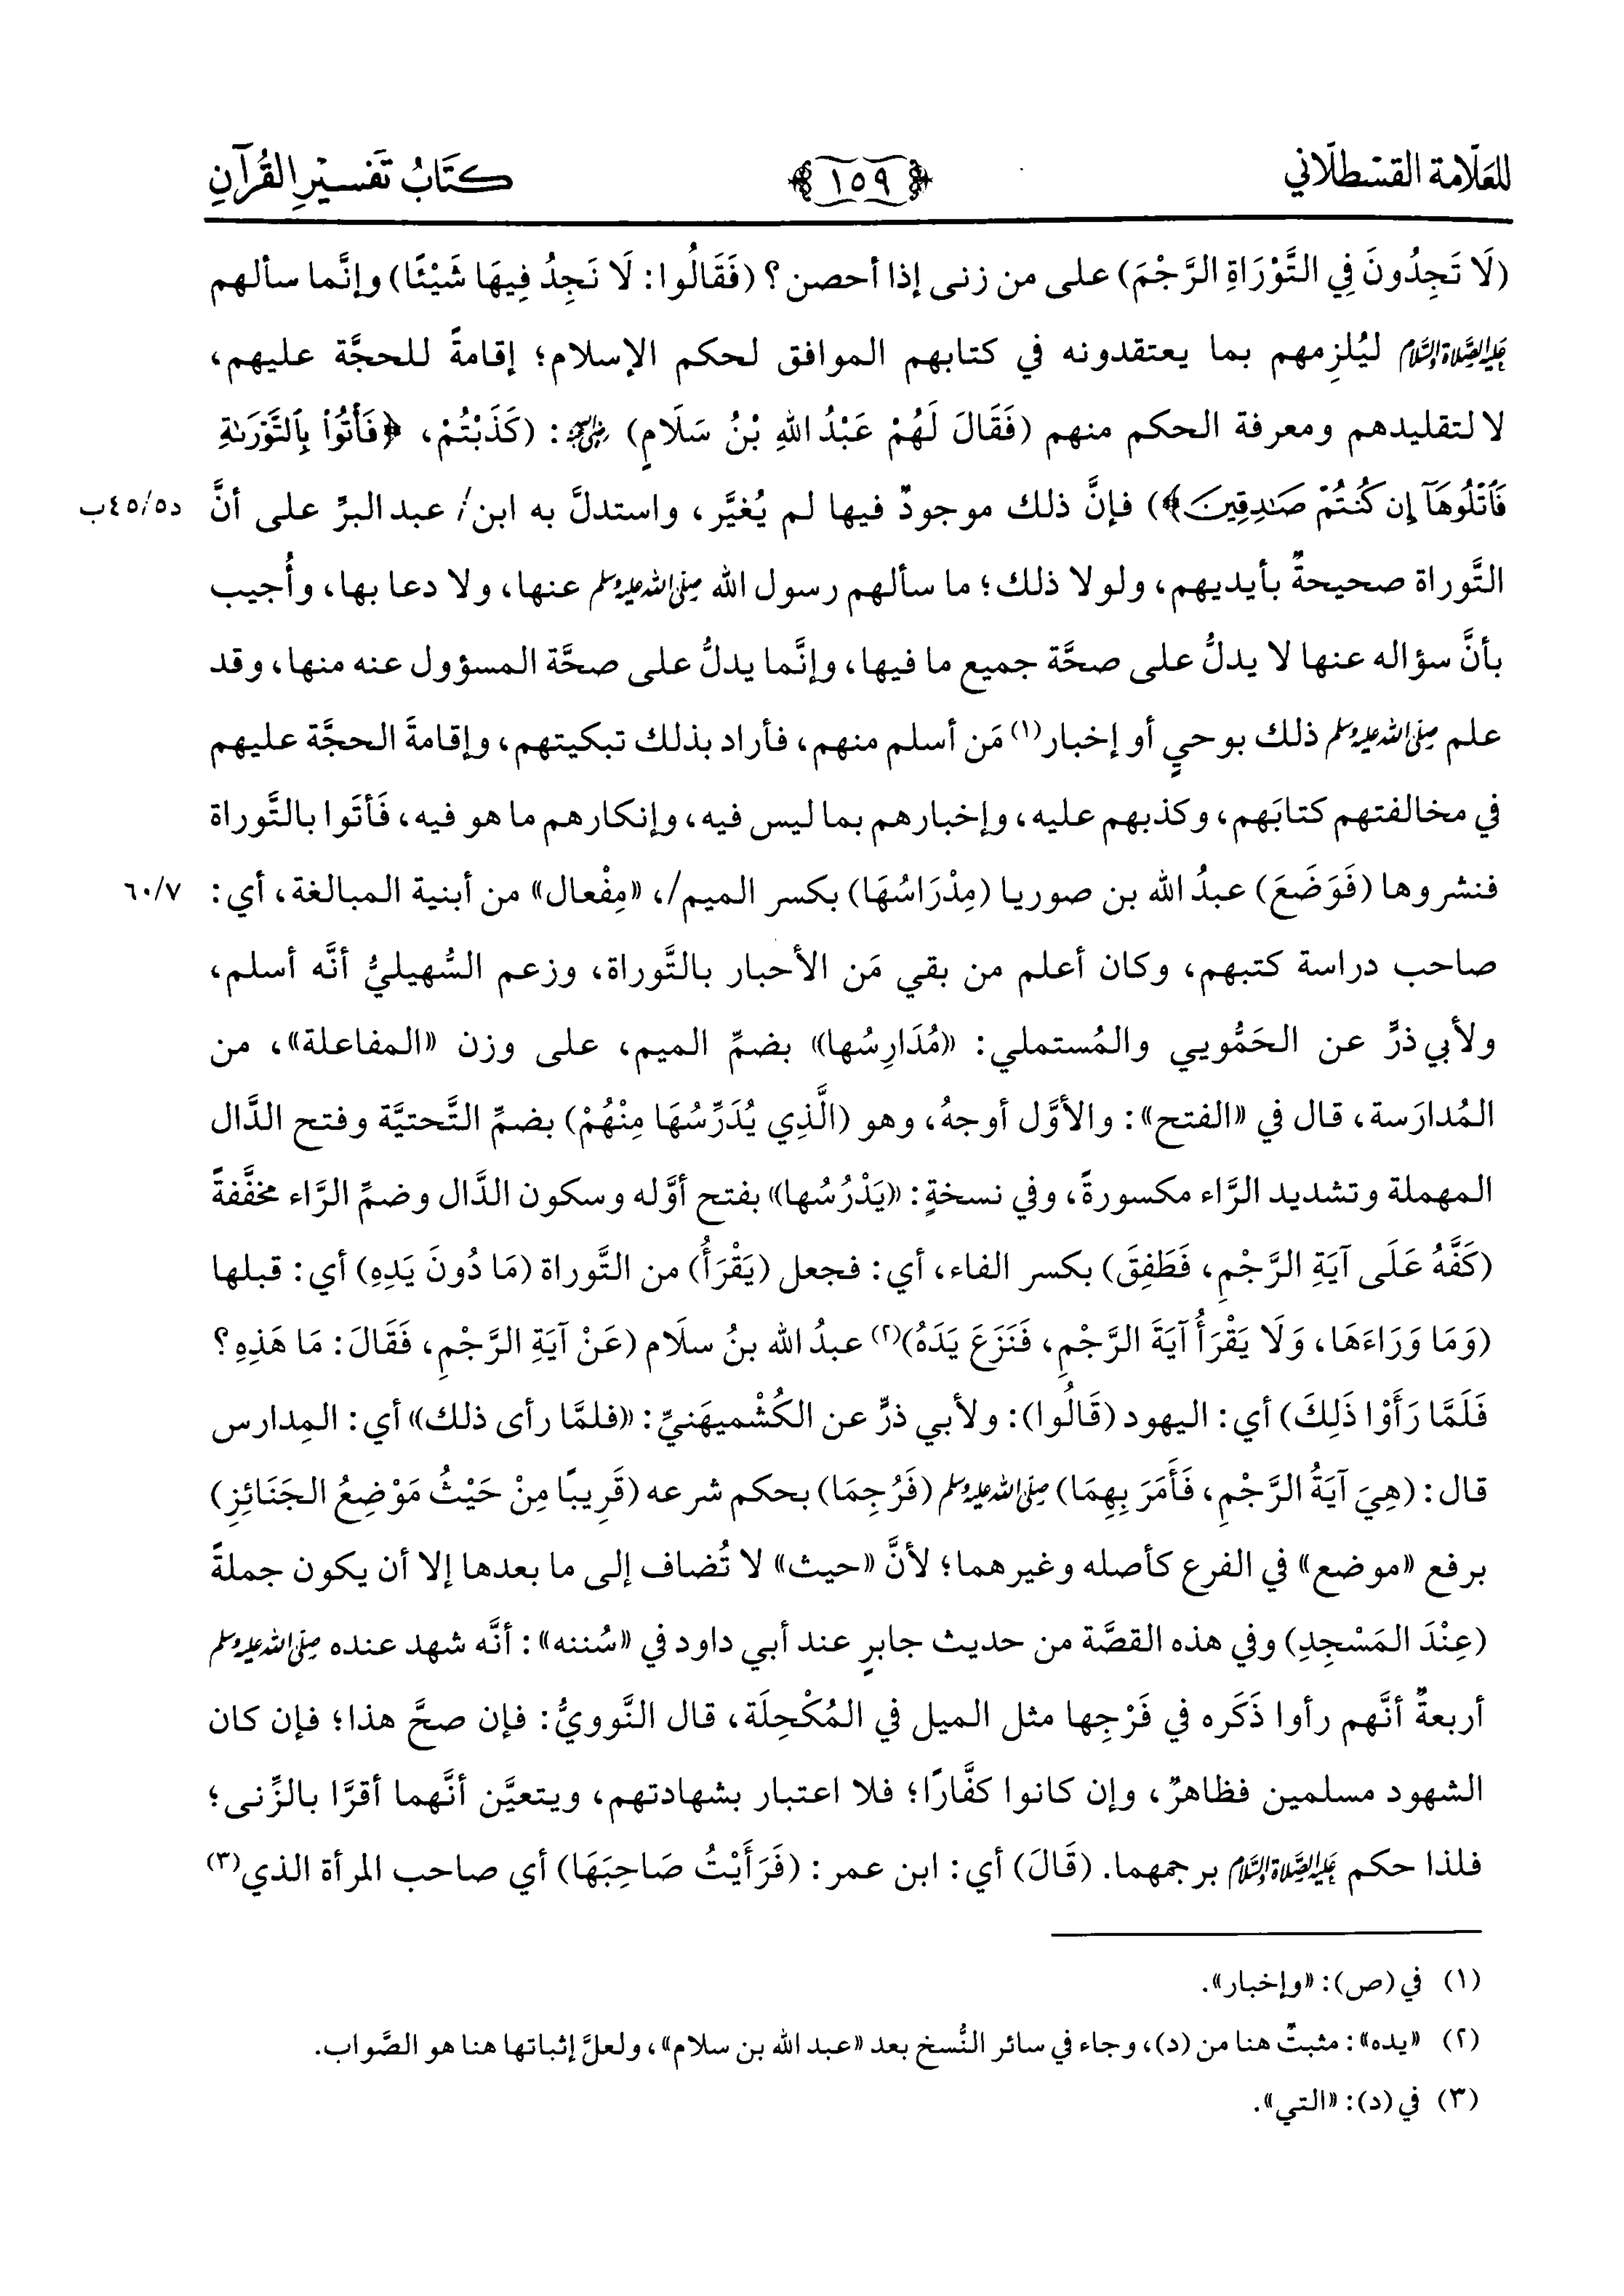 للعلامة القسطلاني ﴿١٥٩﴾ كتَابُ تَفسيْرِ القُرآنِ
(لَا تَجِدُونَ فِي التَّوْرَاةِ الرَّجْمَ) على من زنى إذا أحصن؟ (فَقَالُوا: لَا نَجِدُ فِيهَا شَيْئًا) وإنَّما سألهم
عليه الصلاة والسلام ليُلزِمهم بما يعتقدونه في كتابهم الموافق لحكم الإسلام؛ إقامةً للحجَّة عليهم،
لا لتقليدهم ومعرفة الحكم منهم (فَقَالَ لَهُمْ عَبْدُ اللهِ بْنُ سَلَامٍ) رضي الله عنه: (كَذَبْتُمْ، ﴿فَأْتُوا۟ بِٱلتَّوْرَىٰةِ
فَٱتْلُوهَآ إِن كُنتُمْ صَٰدِقِينَ﴾) فإنَّ ذلك موجودٌ فيها لم يُغيَّر، واستدلَّ به ابن/ عبد البرِّ على أنَّ د٤٥/٥ب
التَّوراة صحيحةٌ بأيديهم، ولولا ذلك؛ ما سألهم رسول الله صلى الله عليه وسلم عنها، ولا دعا بها، وأُجيب
بأنَّ سؤاله عنها لا يدلُّ على صحَّة جميع ما فيها، وإنَّما يدلُّ على صحَّة المسؤول عنه منها، وقد
علم صلى الله عليه وسلم ذلك بوحيٍ أو إخبار(١) مَن أسلم منهم، فأراد بذلك تبكيتهم، وإقامةَ الحجَّة عليهم
في مخالفتهم كتابَهم، وكذبهم عليه، وإخبارهم بما ليس فيه، وإنكارهم ما هو فيه، فَأتَوا بالتَّوراة
فنشروها (فَوَضَعَ) عبدُ الله بن صوريا (مِدْرَاسُهَا) بكسر الميم/، «مِفْعال» من أبنية المبالغة، أي: ٦٠/٧
صاحب دراسة كتبهم، وكان أعلم من بقي مَن الأحبار بالتَّوراة، وزعم السُّهيليُّ أنَّه أسلم،
ولأبي ذرٍّ عن الحَمُّويي والمُستملي: «مُدَارِسُها» بضمِّ الميم، على وزن «المفاعلة»، من
المُدارَسة، قال في «الفتح»: والأوَّل أوجهُ، وهو (الَّذِي يُدَرِّسُهَا مِنْهُمْ) بضمِّ التَّحتيَّة وفتح الدَّال
المهملة وتشديد الرَّاء مكسورةً، وفي نسخةٍ: «يَدْرُسُها» بفتح أوَّله وسكون الدَّال وضمِّ الرَّاء مخفَّفةً
(كَفَّهُ عَلَى آيَةِ الرَّجْمِ، فَطَفِقَ) بكسر الفاء، أي: فجعل (يَقْرَأُ) من التَّوراة (مَا دُونَ يَدِهِ) أي: قبلها
(وَمَا وَرَاءَهَا، وَلَا يَقْرَأُ آيَةَ الرَّجْمِ، فَنَزَعَ يَدَهُ)(٢) عبدُ الله بنُ سلَام (عَنْ آيَةِ الرَّجْمِ، فَقَالَ: مَا هَذِهِ؟
فَلَمَّا رَأَوْا ذَلِكَ) أي: اليهود (قَالُوا): ولأبي ذرٍّ عن الكُشْميهَنيِّ: «فلمَّا رأى ذلك» أي: المِدارس
قال: (هِيَ آيَةُ الرَّجْمِ، فَأَمَرَ بِهِمَا) صلى الله عليه وسلم (فَرُجِمَا) بحكم شرعه (قَرِيبًا مِنْ حَيْثُ مَوْضِعُ الجَنَائِزِ)
برفع «موضع» في الفرع كأصله وغيرهما؛ لأنَّ «حيث» لا تُضاف إلى ما بعدها إلا أن يكون جملةً
(عِنْدَ المَسْجِدِ) وفي هذه القصَّة من حديث جابرٍ عند أبي داود في «سُننه»: أنَّه شهد عنده صلى الله عليه وسلم
أربعةٌ أنَّهم رأوا ذَكَره في فَرْجِها مثل الميل في المُكْحِلَة، قال النَّوويُّ: فإن صحَّ هذا؛ فإن كان
الشهود مسلمين فظاهرٌ، وإن كانوا كفَّارًا؛ فلا اعتبار بشهادتهم، ويتعيَّن أنَّهما أقرَّا بالزِّنى؛
فلذا حكم عليه الصلاة والسلام برجمهما. (قَالَ) أي: ابن عمر: (فَرَأَيْتُ صَاحِبَهَا) أي صاحب المرأة الذي(٣)
(١) في (ص): «وإخبار».
(٢) «يده»: مثبتٌ هنا من (د)، وجاء في سائر النُّسخ بعد «عبد الله بن سلام»، ولعلَّ إثباتها هنا هو الصَّواب.
(٣) في (د): «التي».